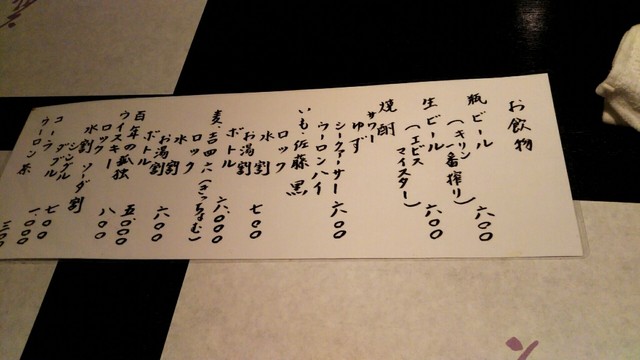 お飲物
瓶ビール
(キリン一番搾り) 六〇〇
生ビール 六〇〇
(エビスマイスター)
焼酎
サワー
ゆず
シークァーサー 六〇〇
ウーロンハイ
いも・佐藤 黒
ロック
水割
お湯割 七〇〇
ボトル 六、〇〇〇
麦・吉四六(きっちょむ)
ロック
水割
お湯割 六〇〇
ボトル 五、〇〇〇
百年の孤独
ウイスキー
ロック 八〇〇
水割 ソーダ割
シングル 七〇〇
ダブル 一、〇〇〇
コーラ
ウーロン茶 三〇〇